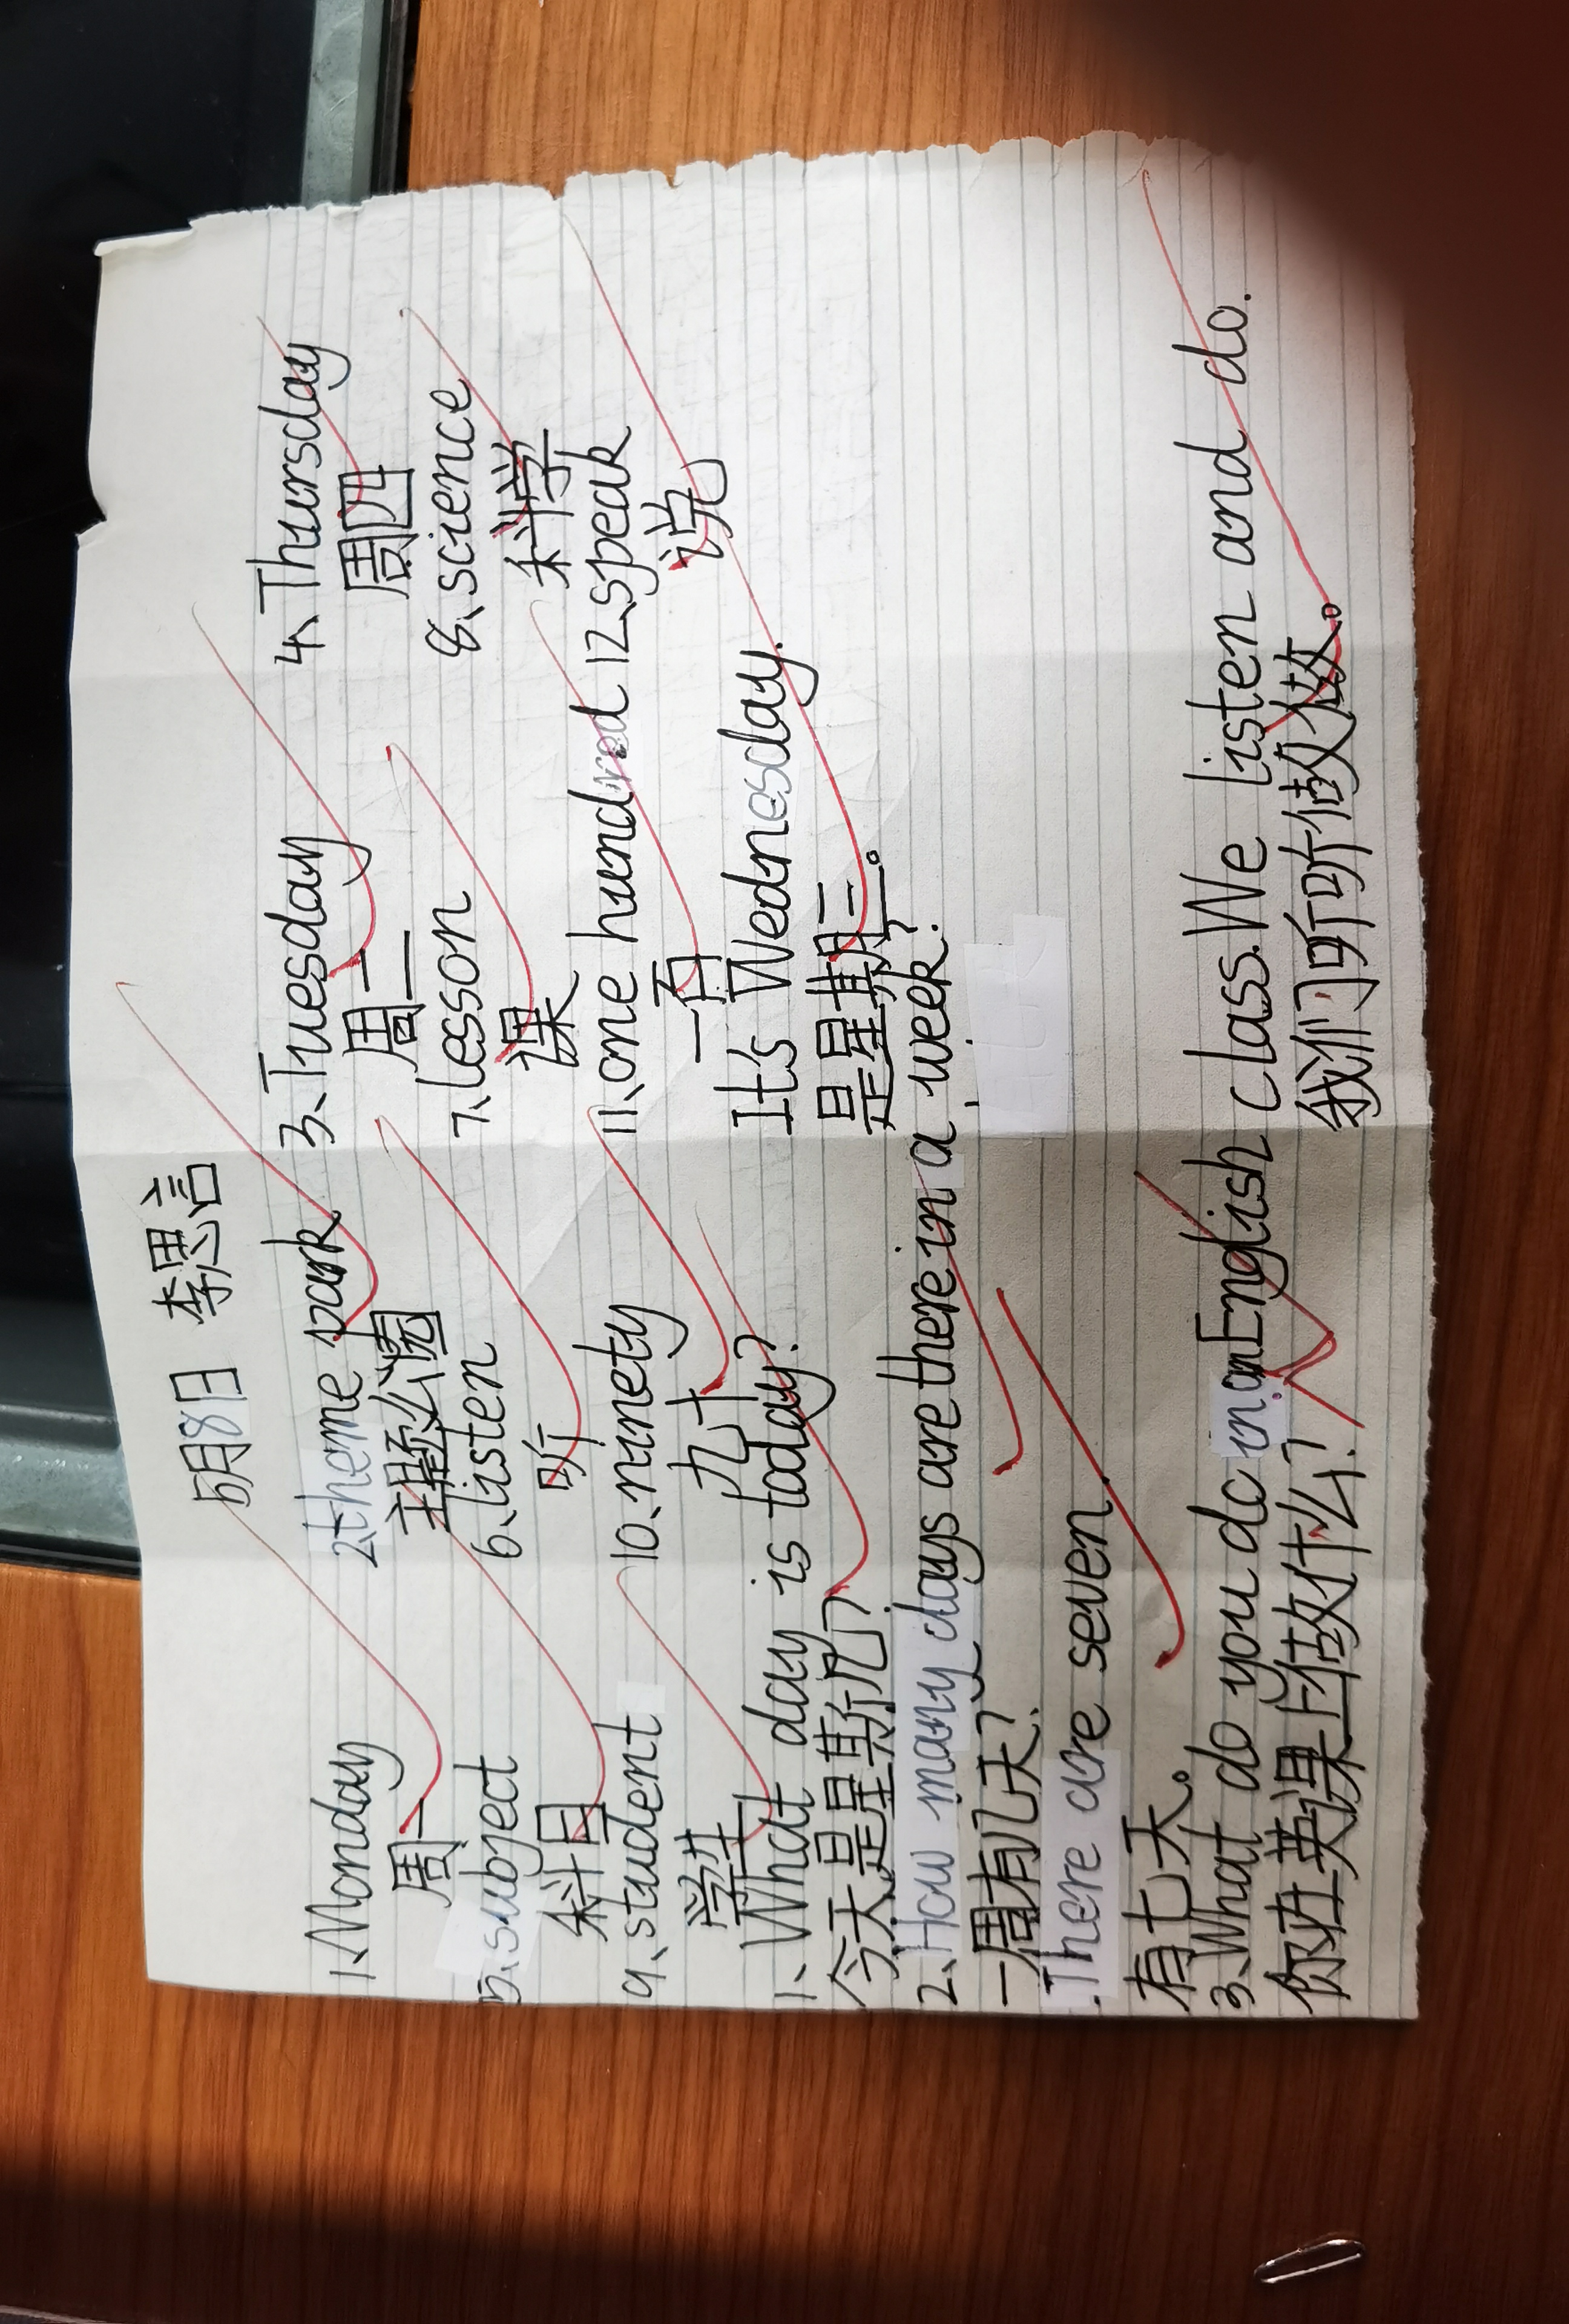 5月8日 李思言
1、Monday 2theme park 3、Tuesday 4、Thursday
周一 主题公园 周二 周四
5、subject 6、listen 7、lesson 8、science
科目 听 课 科学
9、student 10、ninety 11、one hundred 12、speak
学生 九十 一百 说
1、What day is today? It's Wednesday.
今天是星期几? 是星期三。
2、How many days are there in a week?
一周有几天?
.There are seven.
有七天。
3、What do you do in an English class.We listen and do.
你在英课上做什么? 我们听听做做。